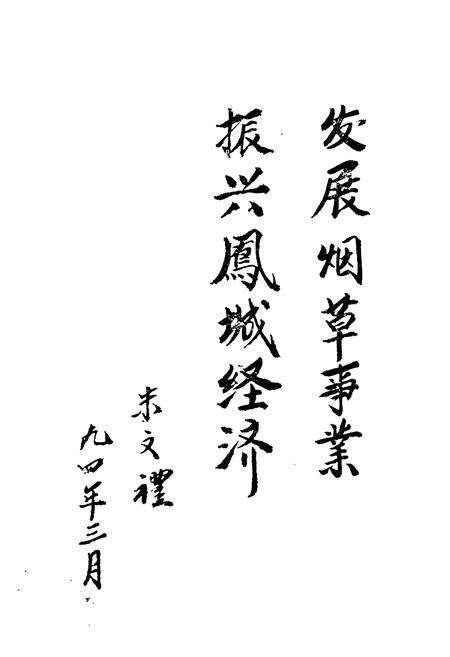 发展烟草事業
振兴鳳城経济
朱文禮
九四年三月